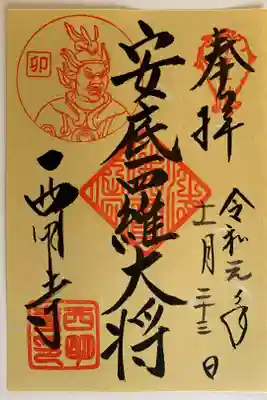 奉拝
令和元年
十一月二十三日
安底羅大将
卯
西明寺